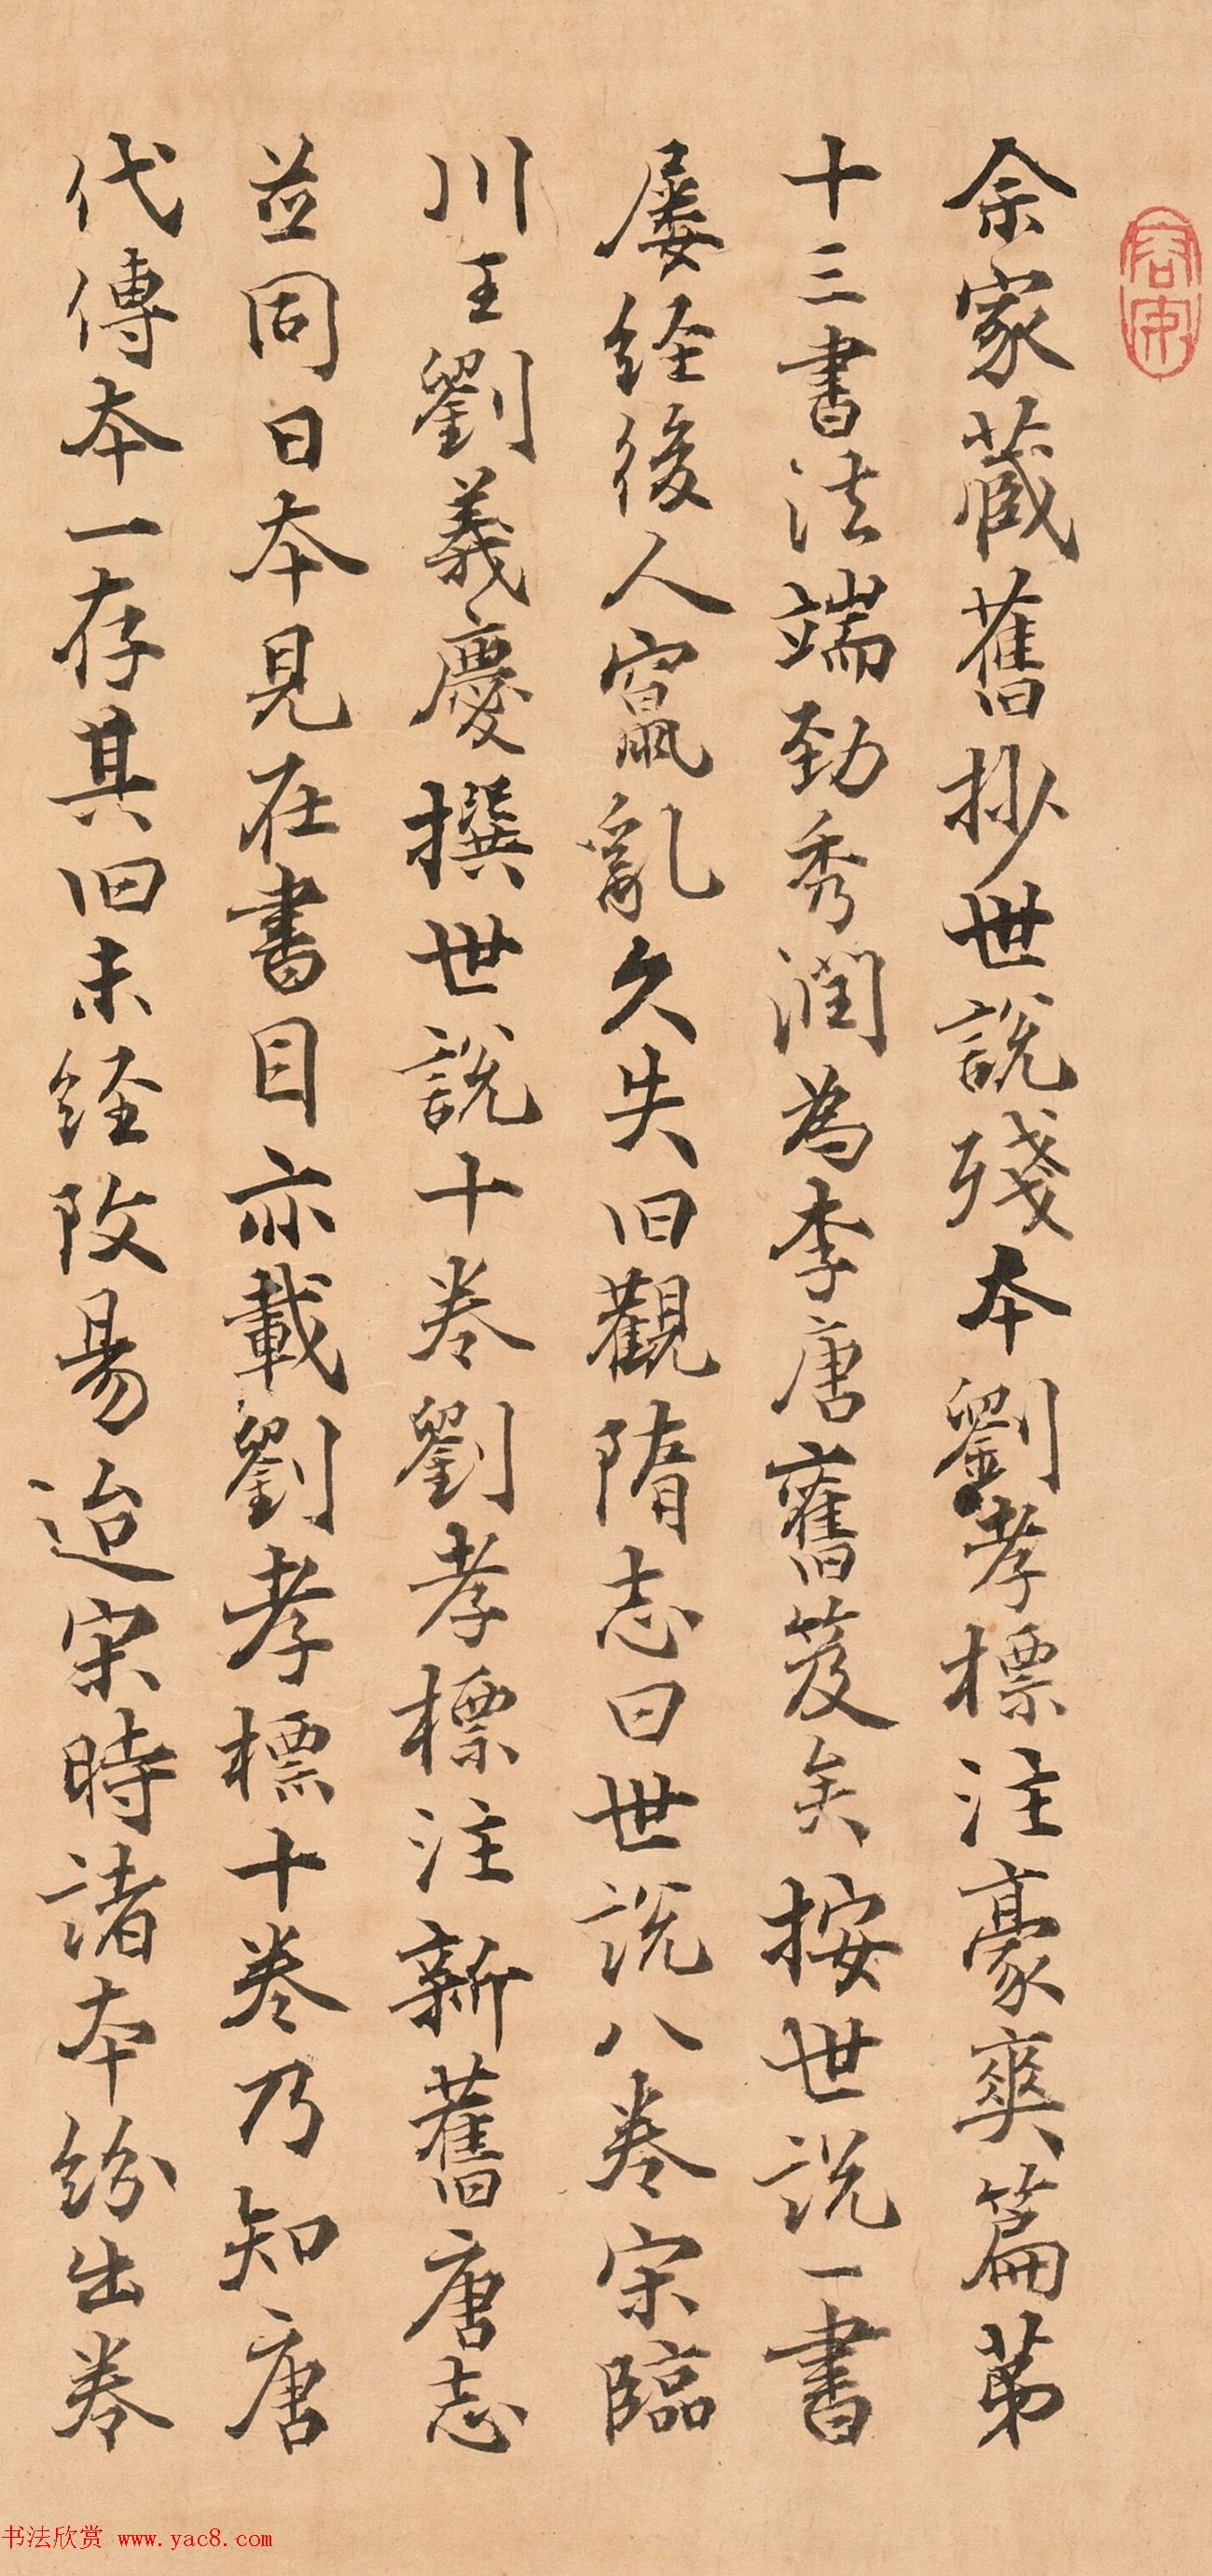 余家蔵舊抄世說残本劉孝標注豪爽篇苐
十三書法端勁秀潤為李唐舊笈矣按世説一書
屡経後人竄亂久失旧觀隋志曰世説八巻宋臨
川王劉義慶撰世説十巻劉孝標注新舊唐志
並同日本見在書目亦載劉孝標十巻乃知唐
代傳本一存其旧未経改易迨宋時諸本紛出巻
书法欣赏 www.yac8.com